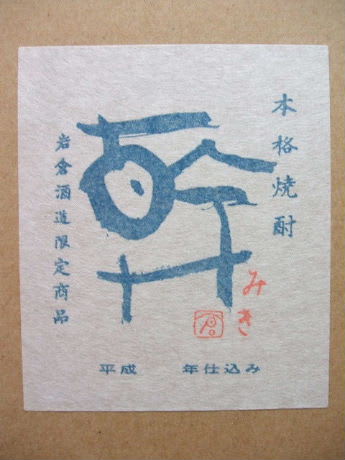 本格焼酎
幹
みき
岩倉酒造限定商品
平成 年仕込み